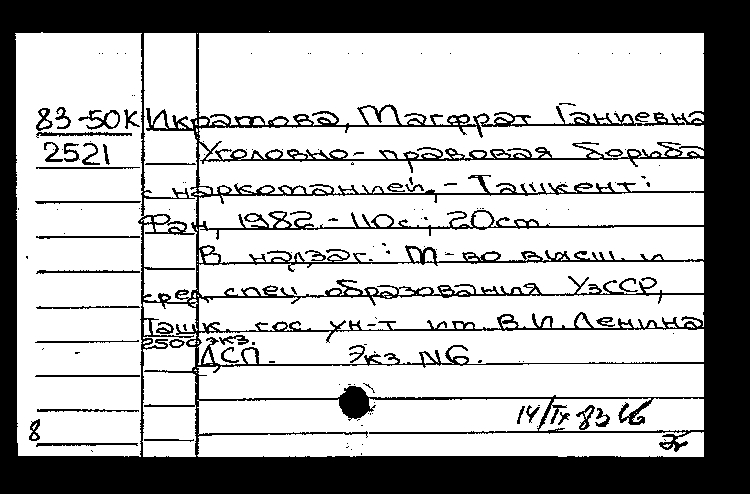 83-50К Икратова, Магфрат Ганиевна
2521 Уголовно-правовая борьба
с наркоманией. - Ташкент:
Фан, 1982. - 110с.; 20см.
В надзаг.: М-во высш. и
сред. спец. образования УзССР,
Ташк. гос. ун-т им. В.И.Ленина
2500 экз.
ДСП. Экз. N6.
14/IX 83
8